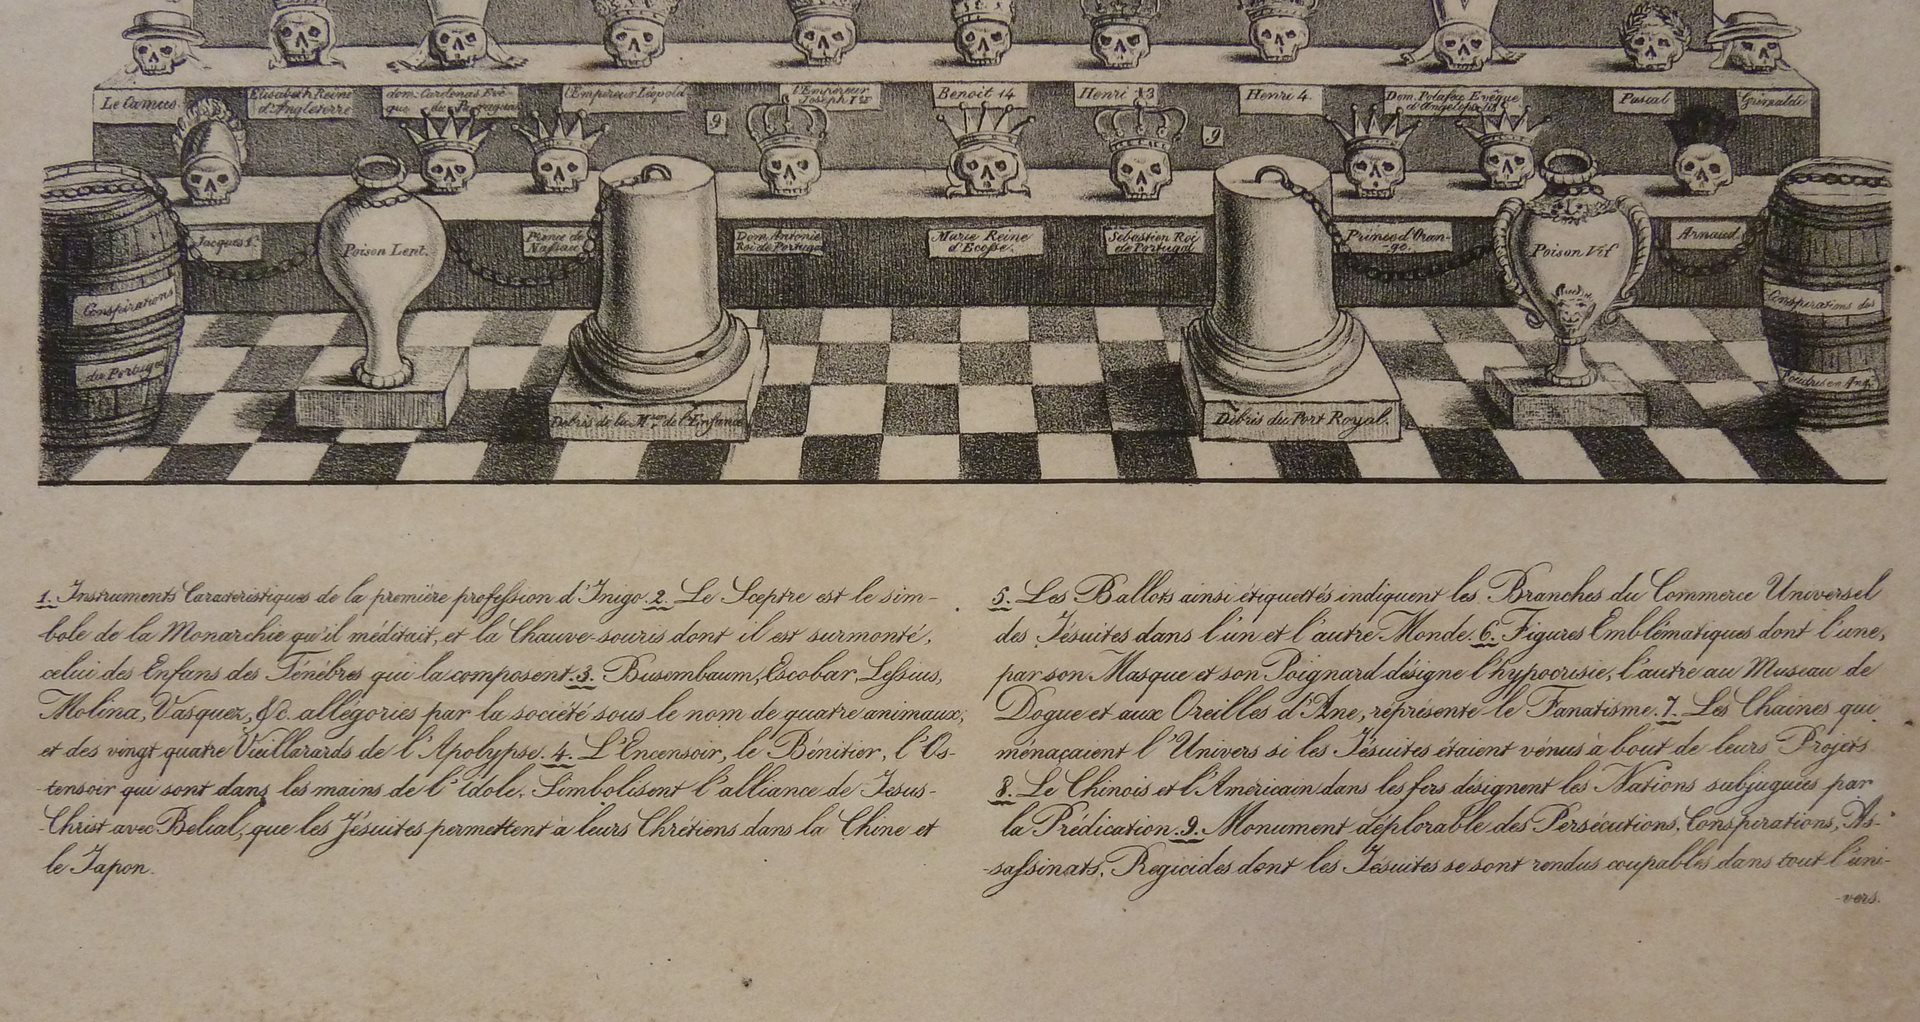 Le Camus.
Elisabeth Reine
d'Angleterre
dom. Cardenas Evê-
que du Paraguai
l'Empereur Léopold
l'Empereur
Joseph 1er
Benoit 14
Henri 13
Henri 4.
Dom. Palafox Evêque
d'Angelopolis
Pascal
Grimaldi
9
9
Jacques 1er
Prince de
Nassau
Dom Antonio
Roi de Portugal
Marie Reine
d'Ecosse.
Sébastien Roi
de Portugal
Prince d'Oran-
ge.
Arnaud
Poison Lent.
Poison Vif
Conspirations
du Portugal
Conspirations des
Poudres en Ang.
Débris de la Mson de l'Enfance
Débris du Port Royal.
1. Instruments Caracteristiques de la première profession d'Inigo. 2. Le Sceptre est le sim-
bole de la Monarchie qu'il méditait, et la Chauve-souris dont il est surmonté,
celui des Enfans des Ténébres qui la composent. 3. Busembaum, Escobar, Lessius,
Molina, Vasquez, &c. allégories par la société sous le nom de quatre animaux,
et des vingt quatre Vieillarards de l'Apolypse. 4. L'Encensoir, le Bénitier, l'Os-
tensoir qui sont dans les mains de l'idole, Simbolisent l'alliance de Jesus-
Christ avec Belial, que les Jésuites permettent à leurs Chrétiens dans la Chine et
le Japon.
5. Les Ballots ainsi étiquettés indiquent les Branches du Commerce Universel
des Jésuites dans l'un et l'autre Monde. 6. Figures Emblématiques dont l'une,
par son Masque et son Poignard désigne l'hypocrisie, l'autre au Museau de
Dogue et aux Oreilles d'Ane, représente le Fanatisme. 7. Les Chaines qui
ménaçaient l'Univers si les Jésuites étaient vénus à bout de leurs Projets
8. Le Chinois et l'Américain dans les fers désignent les Nations subjuguées par
la Prédication. 9. Monument déplorable des Persécutions, Conspirations, As-
-sassinats, Regicides dont les Jésuites se sont rendus coupables dans tout l'uni-
-vers.